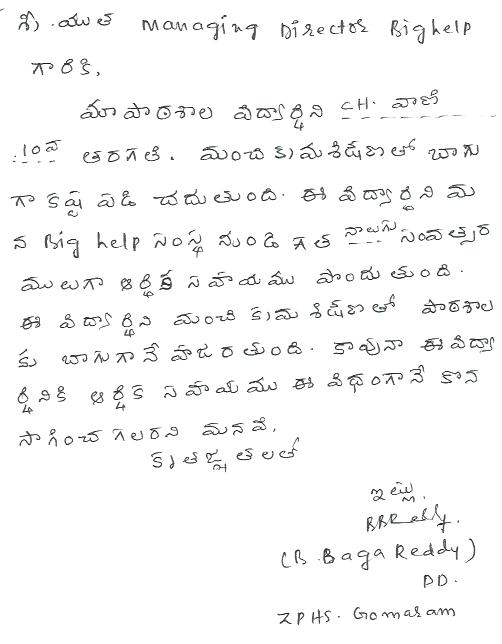 శ్రీ.యుత Managing Director Bighelp
గారికి,
మా పాఠశాల విద్యార్థిని CH. వాణి
10వ తరగతి. మంచి క్రమశిక్షణతో బాగు
గా కష్ట పడి చదుతుంది. ఈ విద్యార్థిని మ
న Big help సంస్థ నుండి గత నాలుగు సంవత్సర
ములుగా ఆర్థిక సహాయము పొందుతుంది.
ఈ విద్యార్థిని మంచి క్రమశిక్షణతో పాఠశాల
కు బాగుగానే హాజరతుంది. కావునా ఈ విద్యా
ర్థినికి ఆర్థిక సహాయము ఈ విధంగానే కొన
సాగించగలరని మనవి.
కృతజ్ఞతలతో
ఇట్లు.
BBReddy.
(B. Baga Reddy)
ZPHS. Gomaram